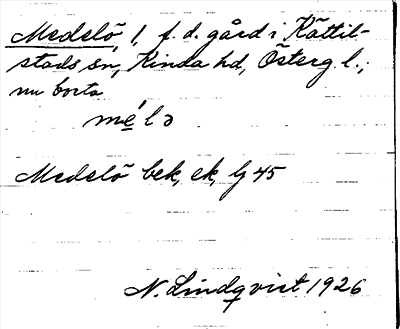 Medelö, 1, f. d. gård i Kättil-
stads sn, Kinda hd, Österg l.;
nu borta
mélə
Medelö bek, ek, G 45
N. Lindqvist 1926